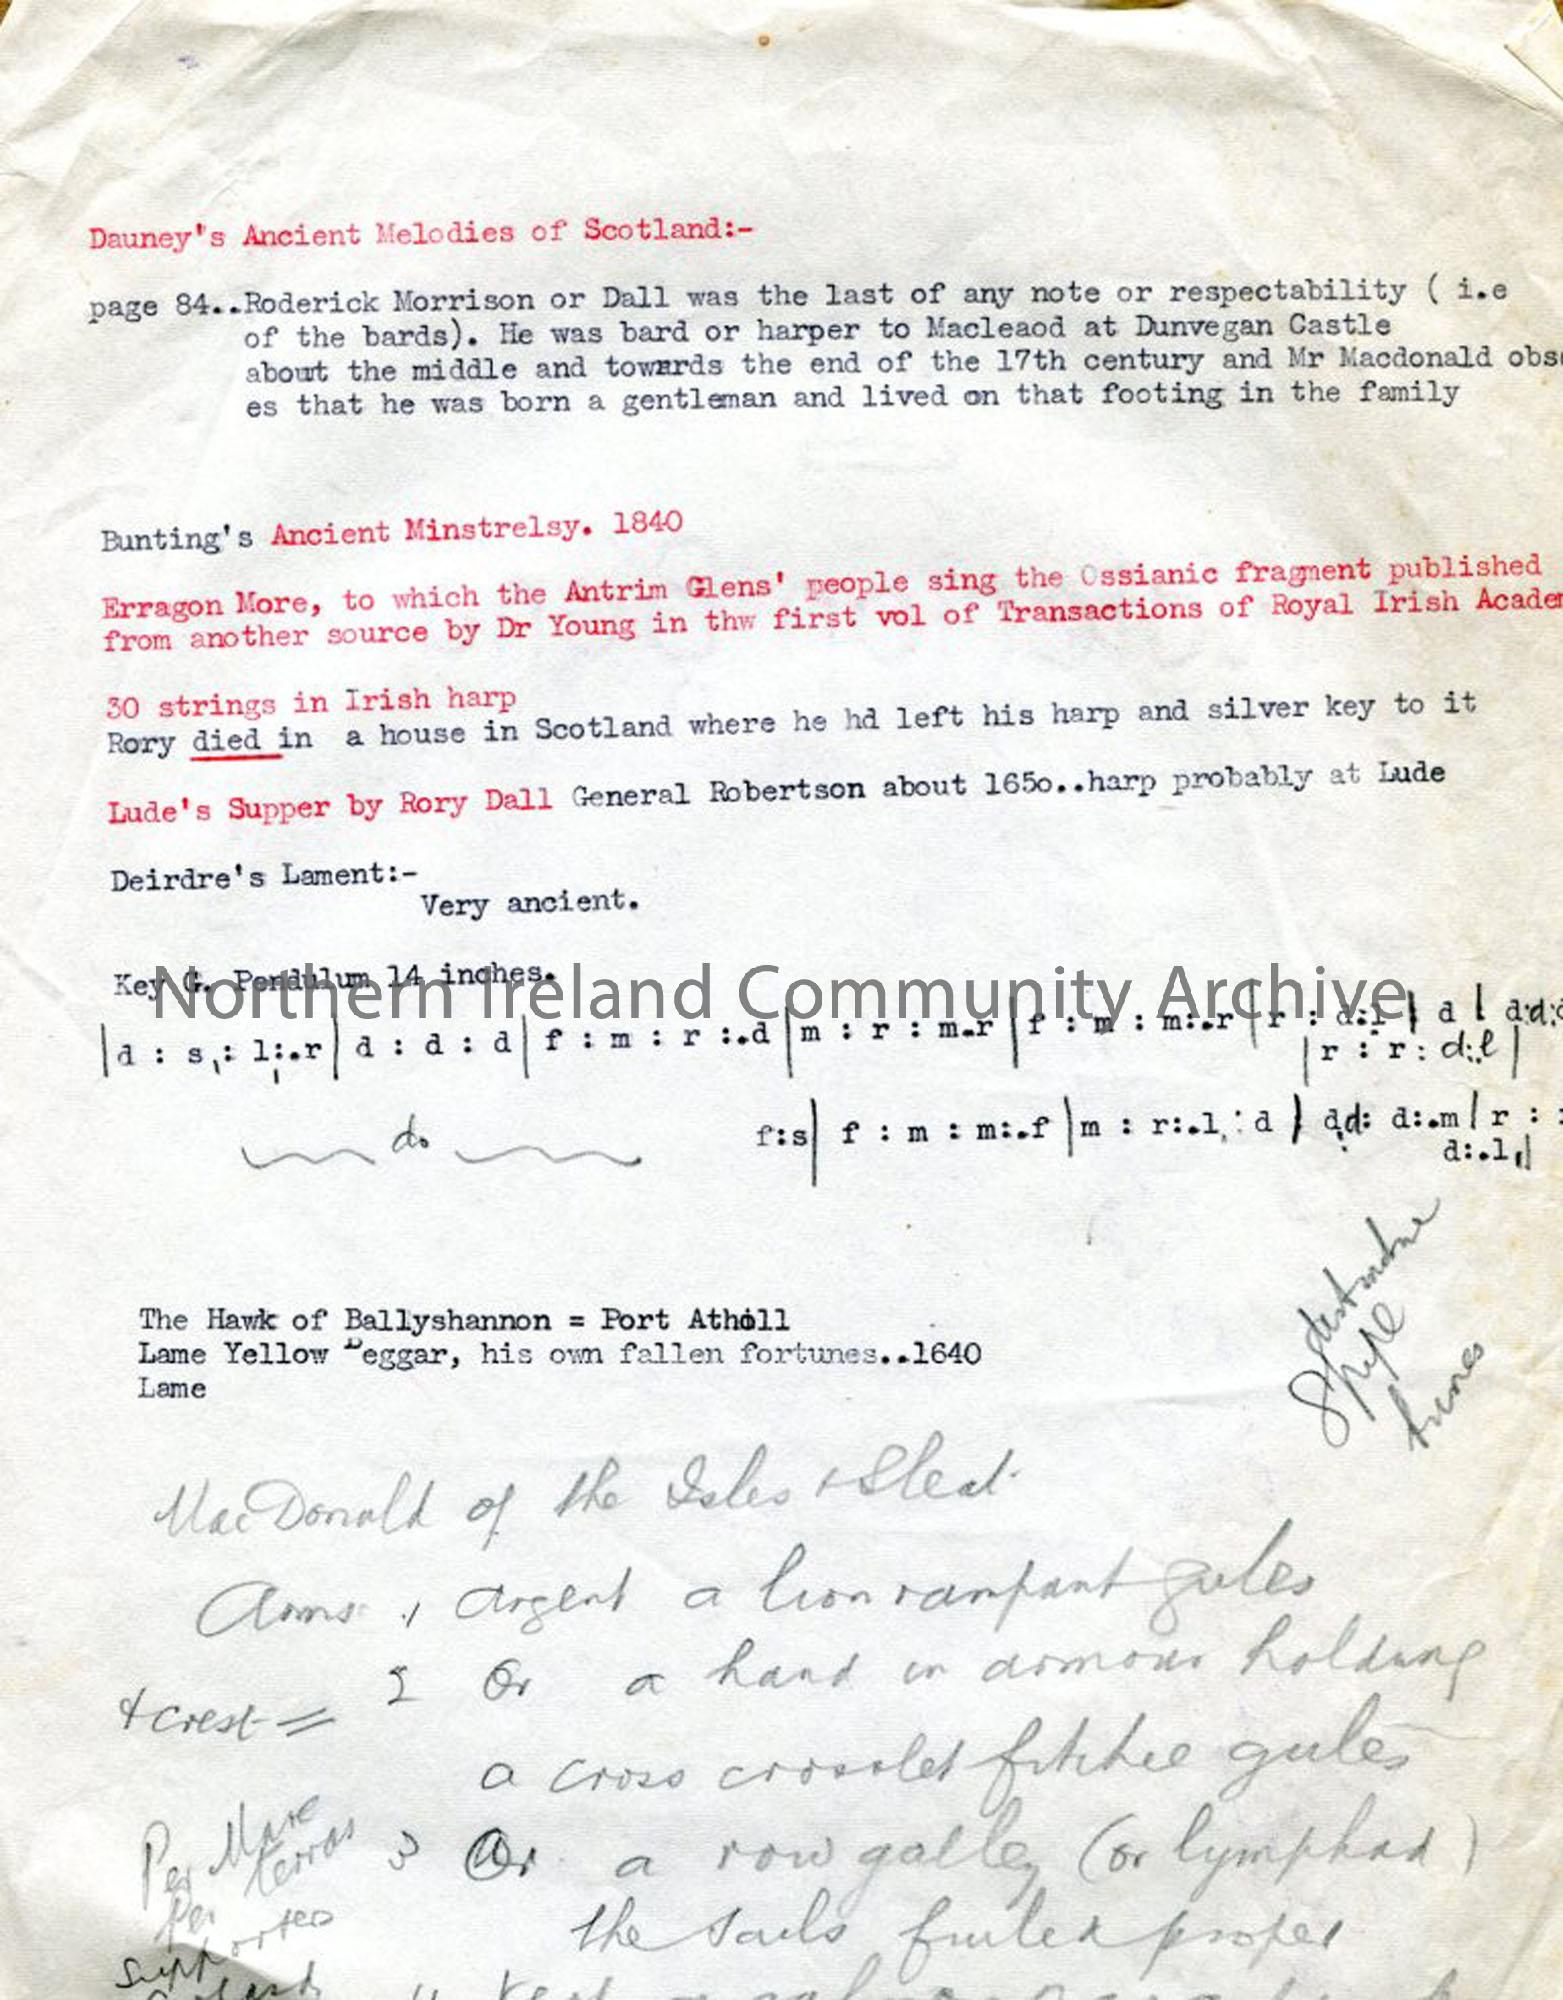 Dauney's Ancient Melodies of Scotland:-
page 84..Roderick Morrison or Dall was the last of any note or respectability ( i.e
of the bards). He was bard or harper to Macleaod at Dunvegan Castle
about the middle and towards the end of the 17th century and Mr Macdonald obs
es that he was born a gentleman and lived on that footing in the family
Bunting's Ancient Minstrelsy. 1840
Erragon More, to which the Antrim Glens' people sing the Ossianic fragment published
from another source by Dr Young in thw first vol of Transactions of Royal Irish Acade
30 strings in Irish harp
Rory died in a house in Scotland where he hd left his harp and silver key to it
Lude's Supper by Rory Dall General Robertson about 1650..harp probably at Lude
Deirdre's Lament:-
Very ancient.
Key G. Pendulum 14 inches.
Northern Ireland Community Archive
|d : s, : l:.r| d : d : d| f : m : r :.d |m : r : m.r |f : m : m:.r |r : d:l | d | d:d:
|r : r : d:l |
do f:s| f : m : m:.f |m : r:.l, : d | d,d: d:.m| r : :
d:.l,|
The Hawk of Ballyshannon = Port Atholl
Lame Yellow Beggar, his own fallen fortunes..1640
Lame
pipe
tunes
MacDonald of the Isles & Sleat
Arms 1 Argent a lion rampant gules
2 Or a hand in armour holding
& crest =
a cross crosslet fitchee gules
Per Mare
Per terras
3 Or a row galley (or lymphad)
the sails furled proper